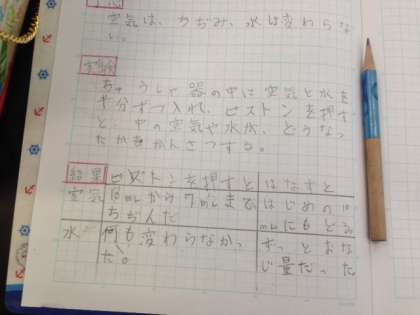 空気は、ちぢみ、水は変わらな
い。
実験
ちゅうしゃ器の中に空気と水を
半分ずつ入れ、ピストンを押す
と、中の空気や水が、どうなっ
たかをかんさつする。
結果 ピストンを押すと はなすと
空気 10mLから7mLまで はじめの10
ちぢんだ mLにもどる
水 何も変わらなかっ ずっとおな
た。 じ量だった